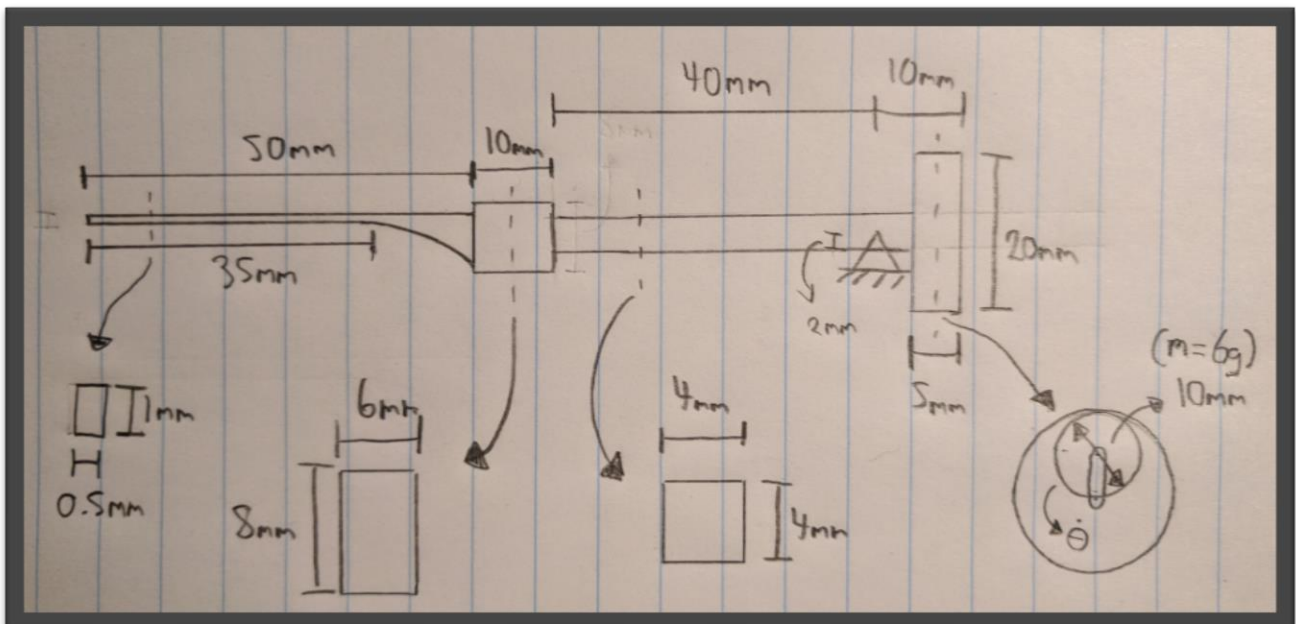 40mm
10mm
50mm
10mm
35mm
20mm
2mm
5mm
(m=6g)
10mm
1mm
0.5mm
6mm
8mm
4mm
4mm
θ̇